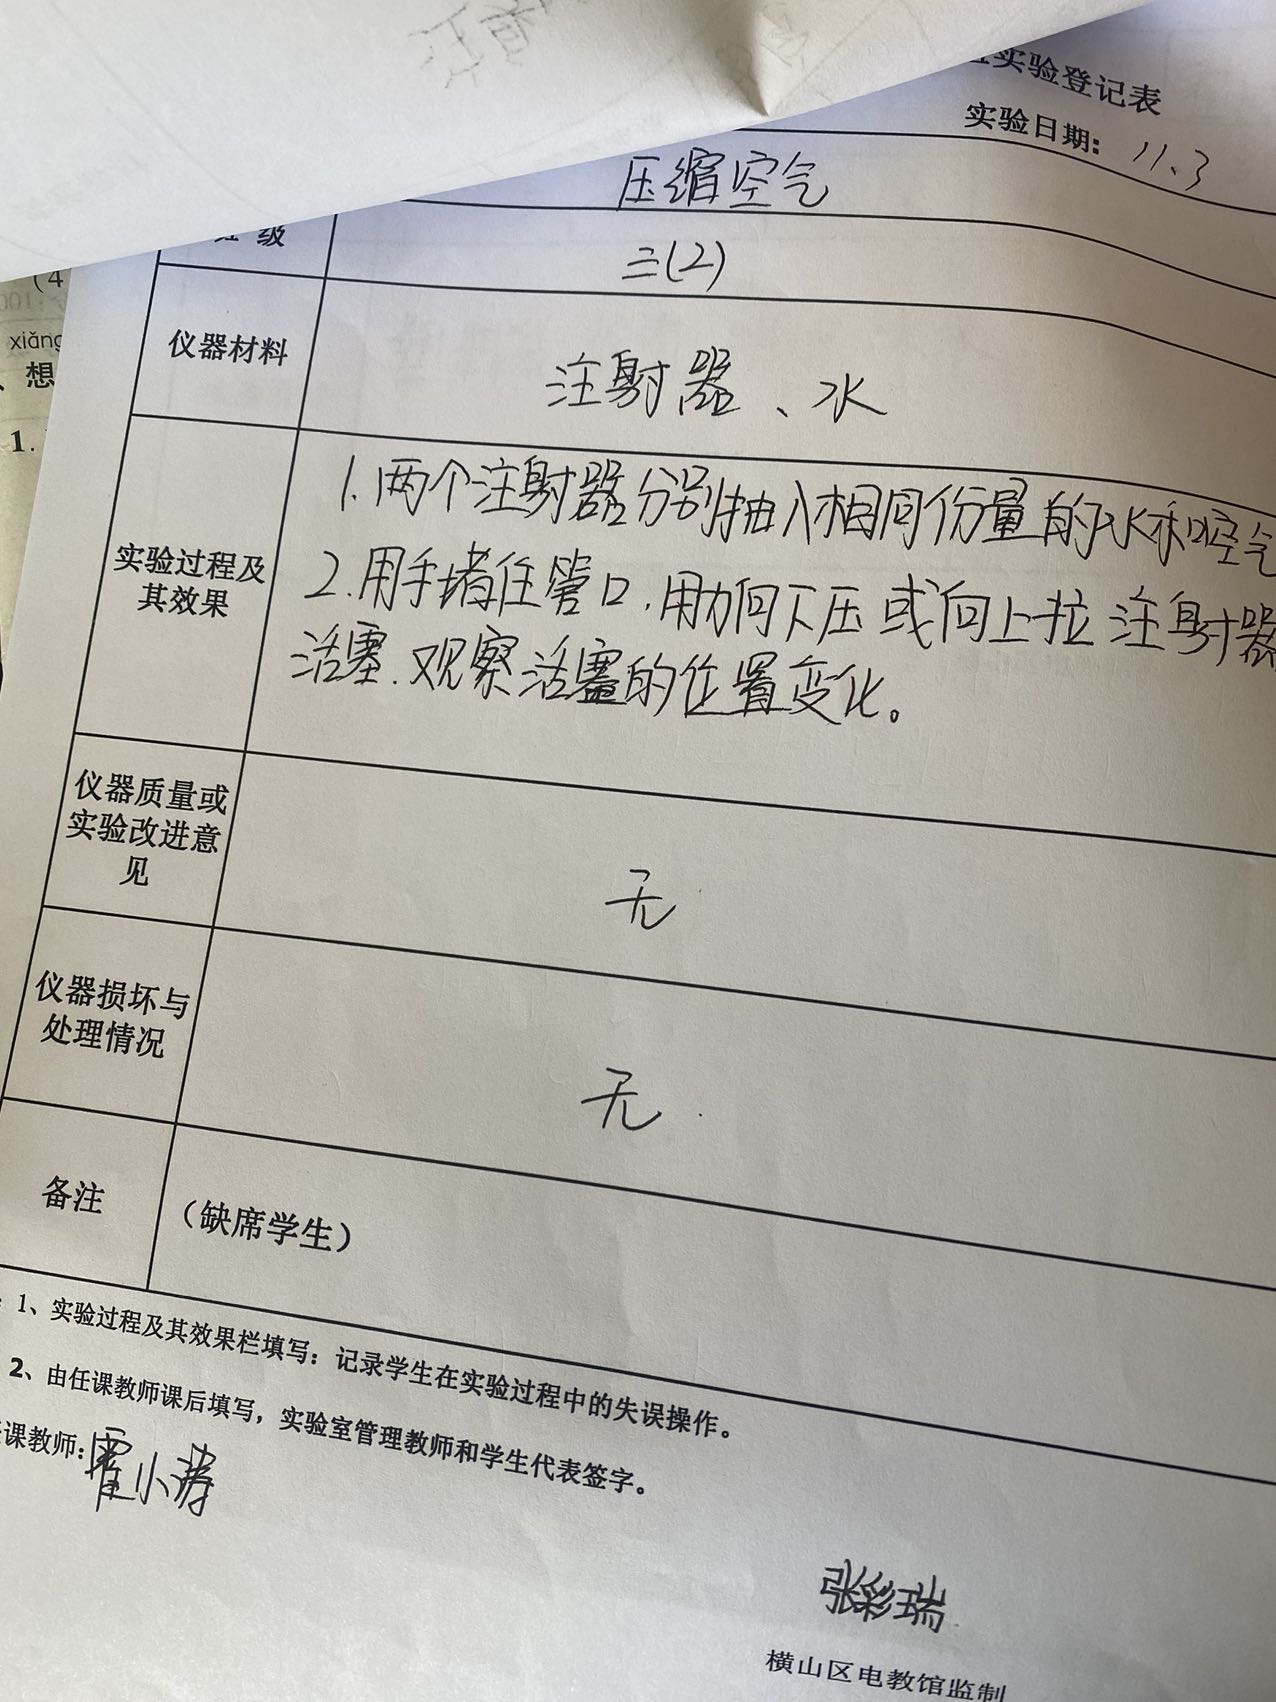 实验登记表
实验日期：11.3
压缩空气
级
三(2)
仪器材料
注射器、水
实验过程及
其效果
1.两个注射器分别抽入相同份量的水和空气
2.用手堵住管口,用力向下压或向上拉注射器
活塞.观察活塞的位置变化。
仪器质量或
实验改进意
见
无
仪器损坏与
处理情况
无
备注
（缺席学生）
1、实验过程及其效果栏填写：记录学生在实验过程中的失误操作。
2、由任课教师课后填写，实验室管理教师和学生代表签字。
课教师:霍小涛
张彩瑞
横山区电教馆监制
(4
xiǎng
、想
1.